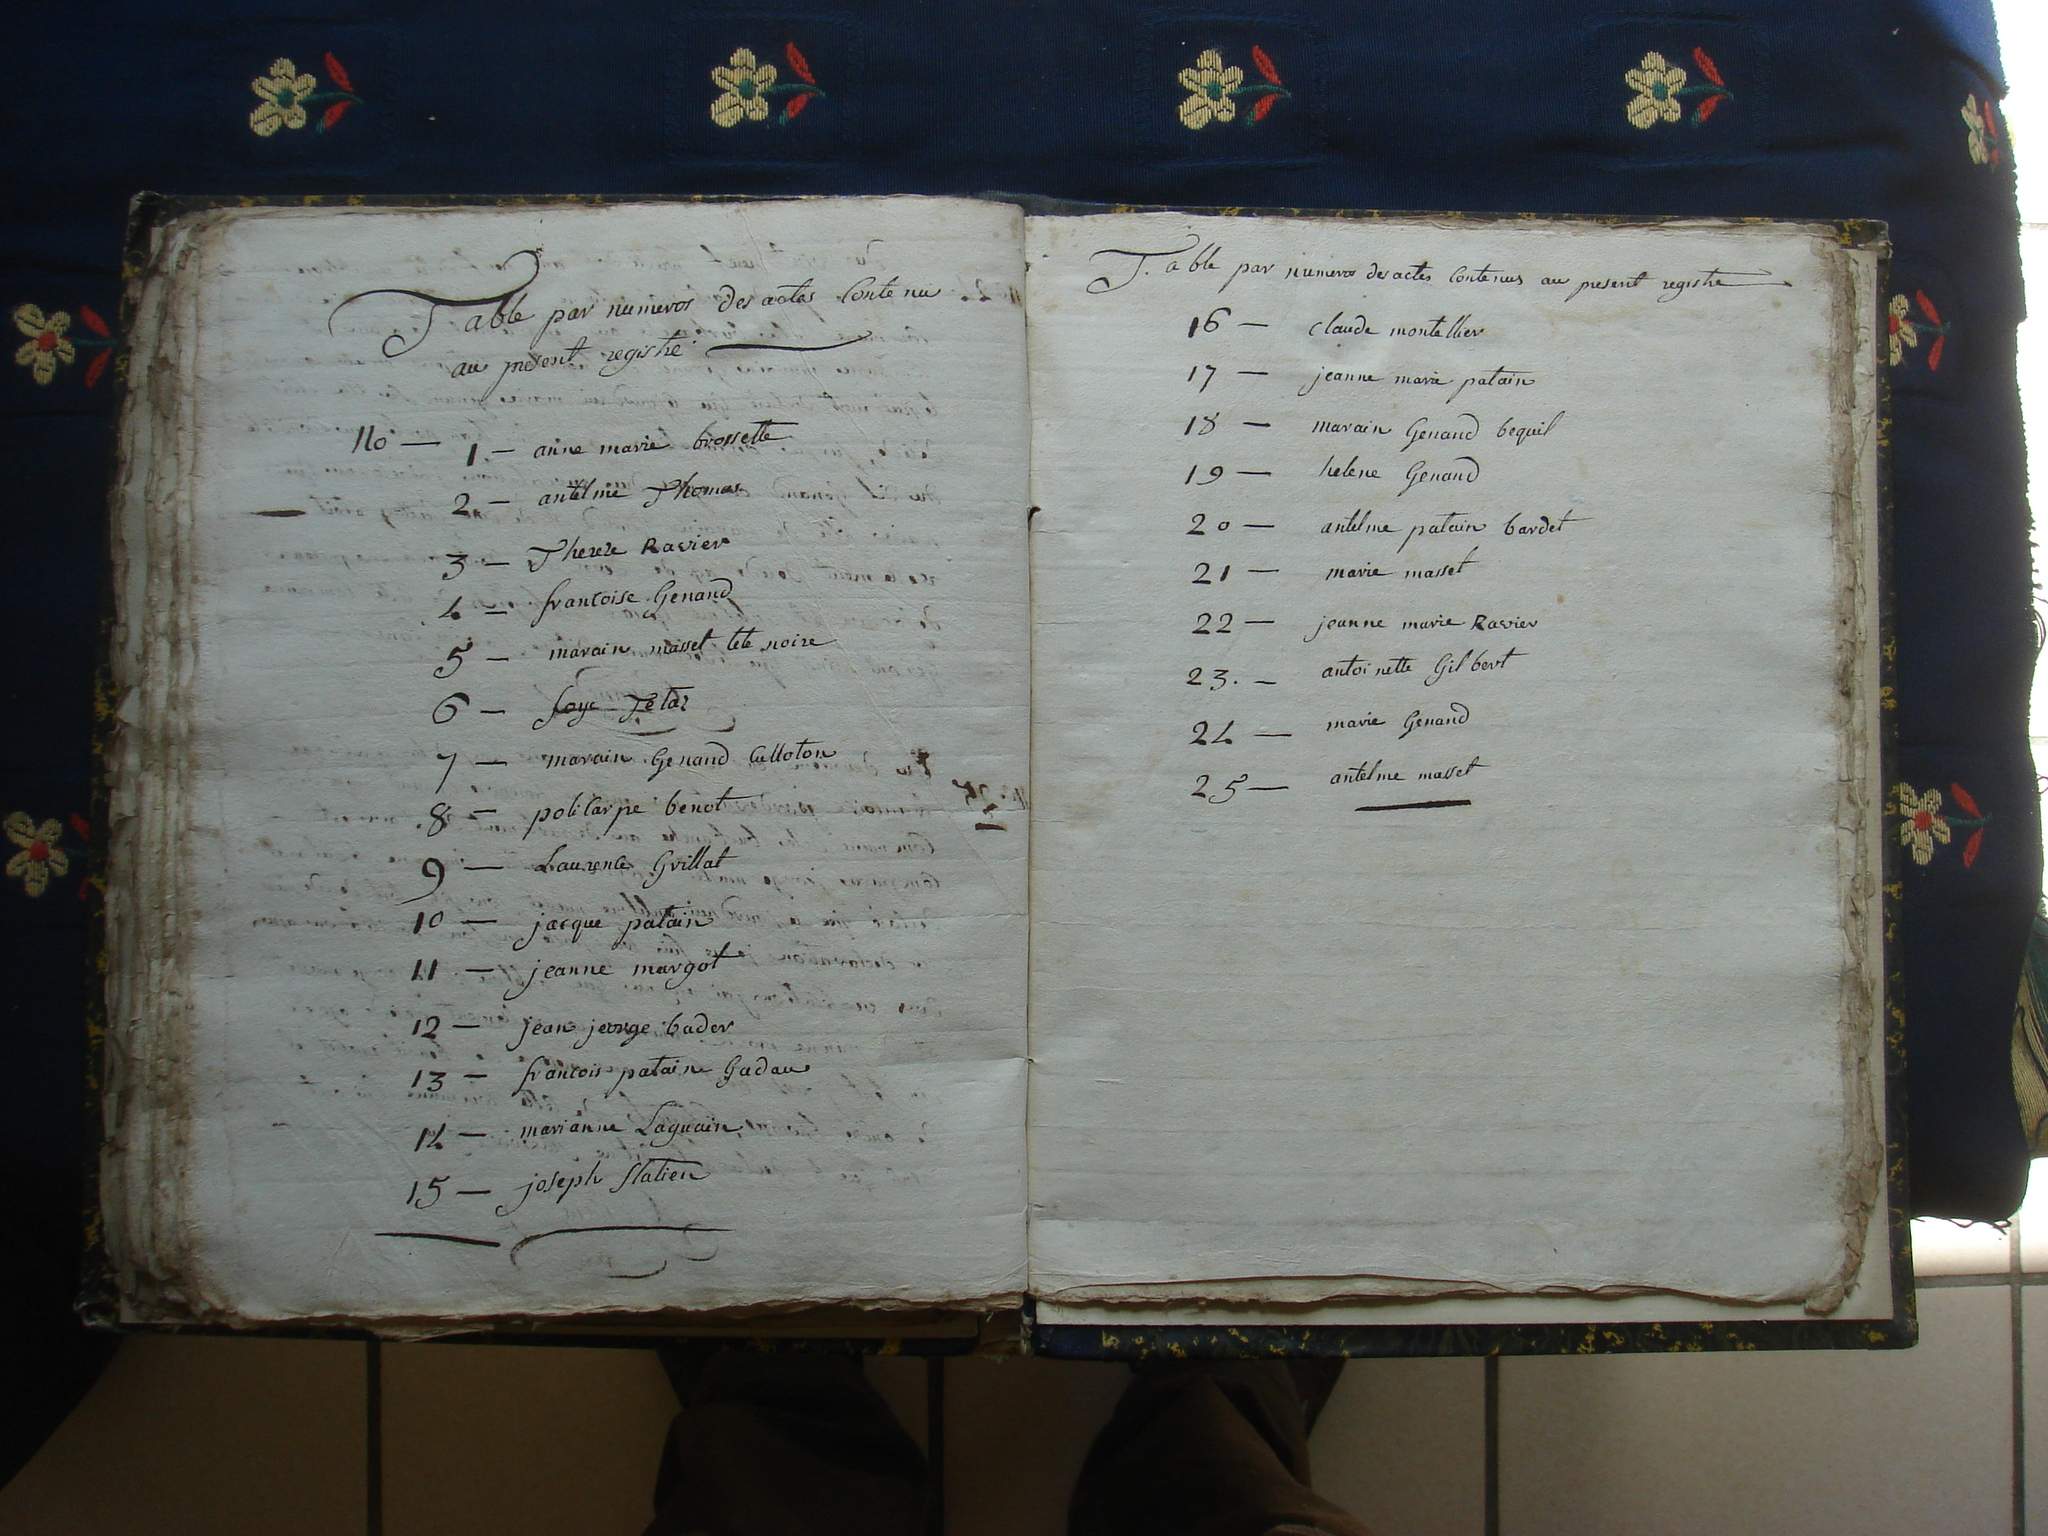 Table par numeros des actes Contenu
au present registre
No — 1 — anne marie brossette
2 — antelme Thomas
3 — Thereze Ravier
4 — francoise Genand
5 — marain masset tete noire
6 — foye Tetaz
7 — marain Genand Culloton
8 — policarpe benot
9 — Laurence Grillat
10 — jacque patain
11 — jeanne margot
12 — jean jeorge bader
13 — francois patain Gadau
14 — marianne Laguain
15 — joseph Statien
Table par numeros des actes Contenus au present registre
16 — claude montellier
17 — jeanne marie patain
18 — marain Genand bequil
19 — helene Genand
20 — antelme patain bardet
21 — marie masset
22 — jeanne marie Ravier
23. — antoinette Gilbert
24 — marie Genand
25 — antelme masset